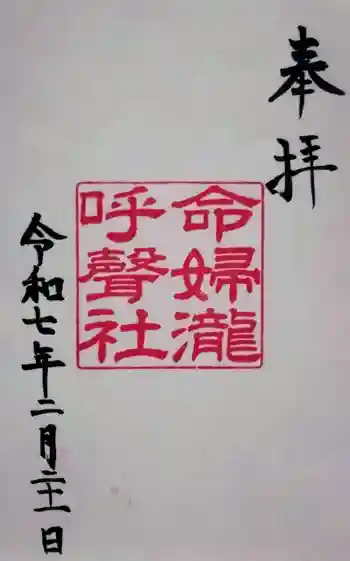 奉拝
命婦瀧
呼聲社
令和七年二月二十一日